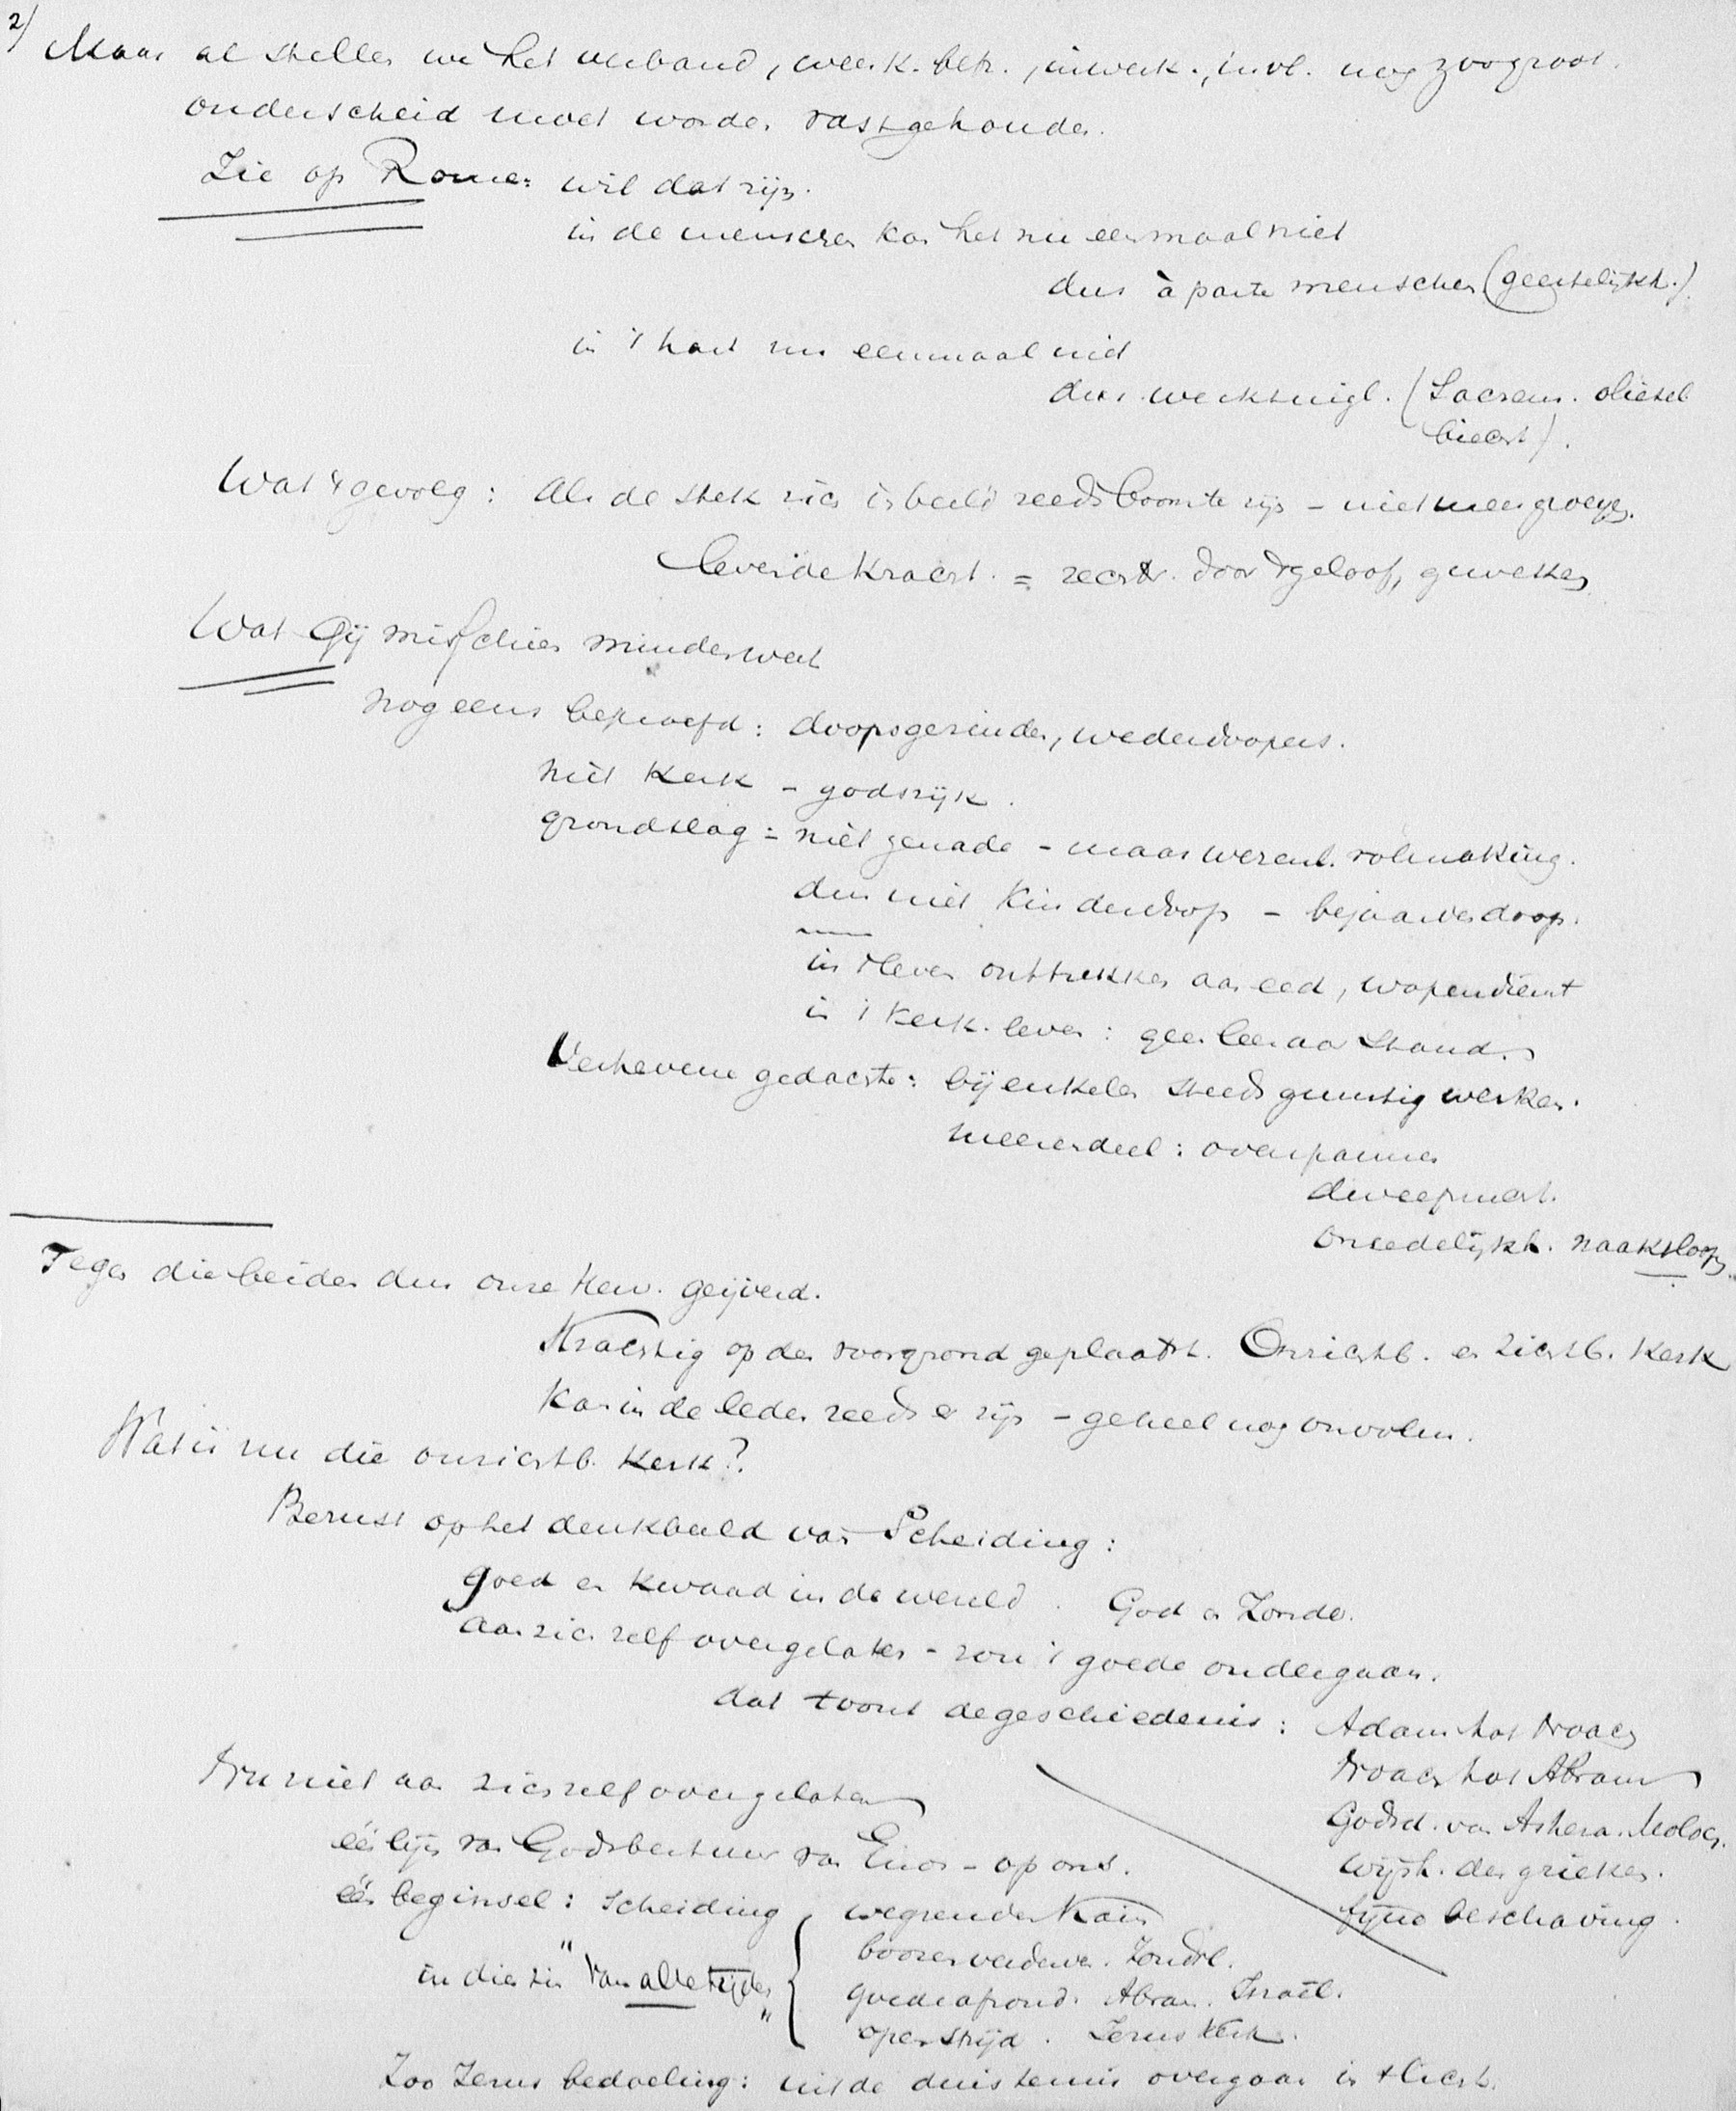 2) Maar al stellen we het verband, werk. betr., inwerk., invl. nog zoo groot.
onderscheid moet worden vastgehouden.
Zie op Rome: wil dat zijn.
in de menschen kan het nu eenmaal niet
dus à parte menschen (geestelijkh.).
in 't hart nu eenmaal niet
dus werktuigl. (Sacram. oliesel
biecht).
Wat 't gevolg: Als de stek zich inbeeldt reeds boom te zijn – niet meer groeyen.
levende kracht. = rechtv. door 't geloof, geweken
Wat Gij misschien minder weet
nog eens beproefd: doopsgezinden, wederdoopers.
niet Kerk – godsrijk.
grondslag = niet genade – maar wezenl. volmaking.
dus niet Kinderdoop – bejaardendoop.
in 't leven onttrekken aan eed, wapendienst
in 't Kerk. leven: geen leeraarstand.
Verhevene gedachte: bij enkelen steeds gunstig werken.
meerendeel: overspannen
dweepzucht.
onzedelijkh. naaktloop.
Tegen die beiden dus onze Herv. geijverd.
Krachtig op den voorgrond geplaatst. Onzichtb. en Zichtb. Kerk
Kan in de leden reeds er zijn – geheel nog onvolm.
Wat is nu die onzichtb. Kerk?
Berust op het denkbeeld van Scheiding:
goed en kwaad in de wereld. God en Zonde.
aan zich zelf overgelaten – zou 't goede ondergaan.
dat toont de geschiedenis: Adam tot Noach
Noach tot Abram
Godsd. van Ashera. Moloch.
Wijsh. der grieken.
fijne beschaving.
Nu niet aan zichzelf overgelaten
één lijn van Godsbestuur van Enos – op ons.
één beginsel: Scheiding
in dien zin "van alle tijden"
wegzenden Kaïn
boozen verderven. Zondvl.
goeden afzond. Abram. Israël.
open strijd. Jezus Kerk.
Zoo Jezus bedoeling: uit de duisternis overgaan in 't licht.